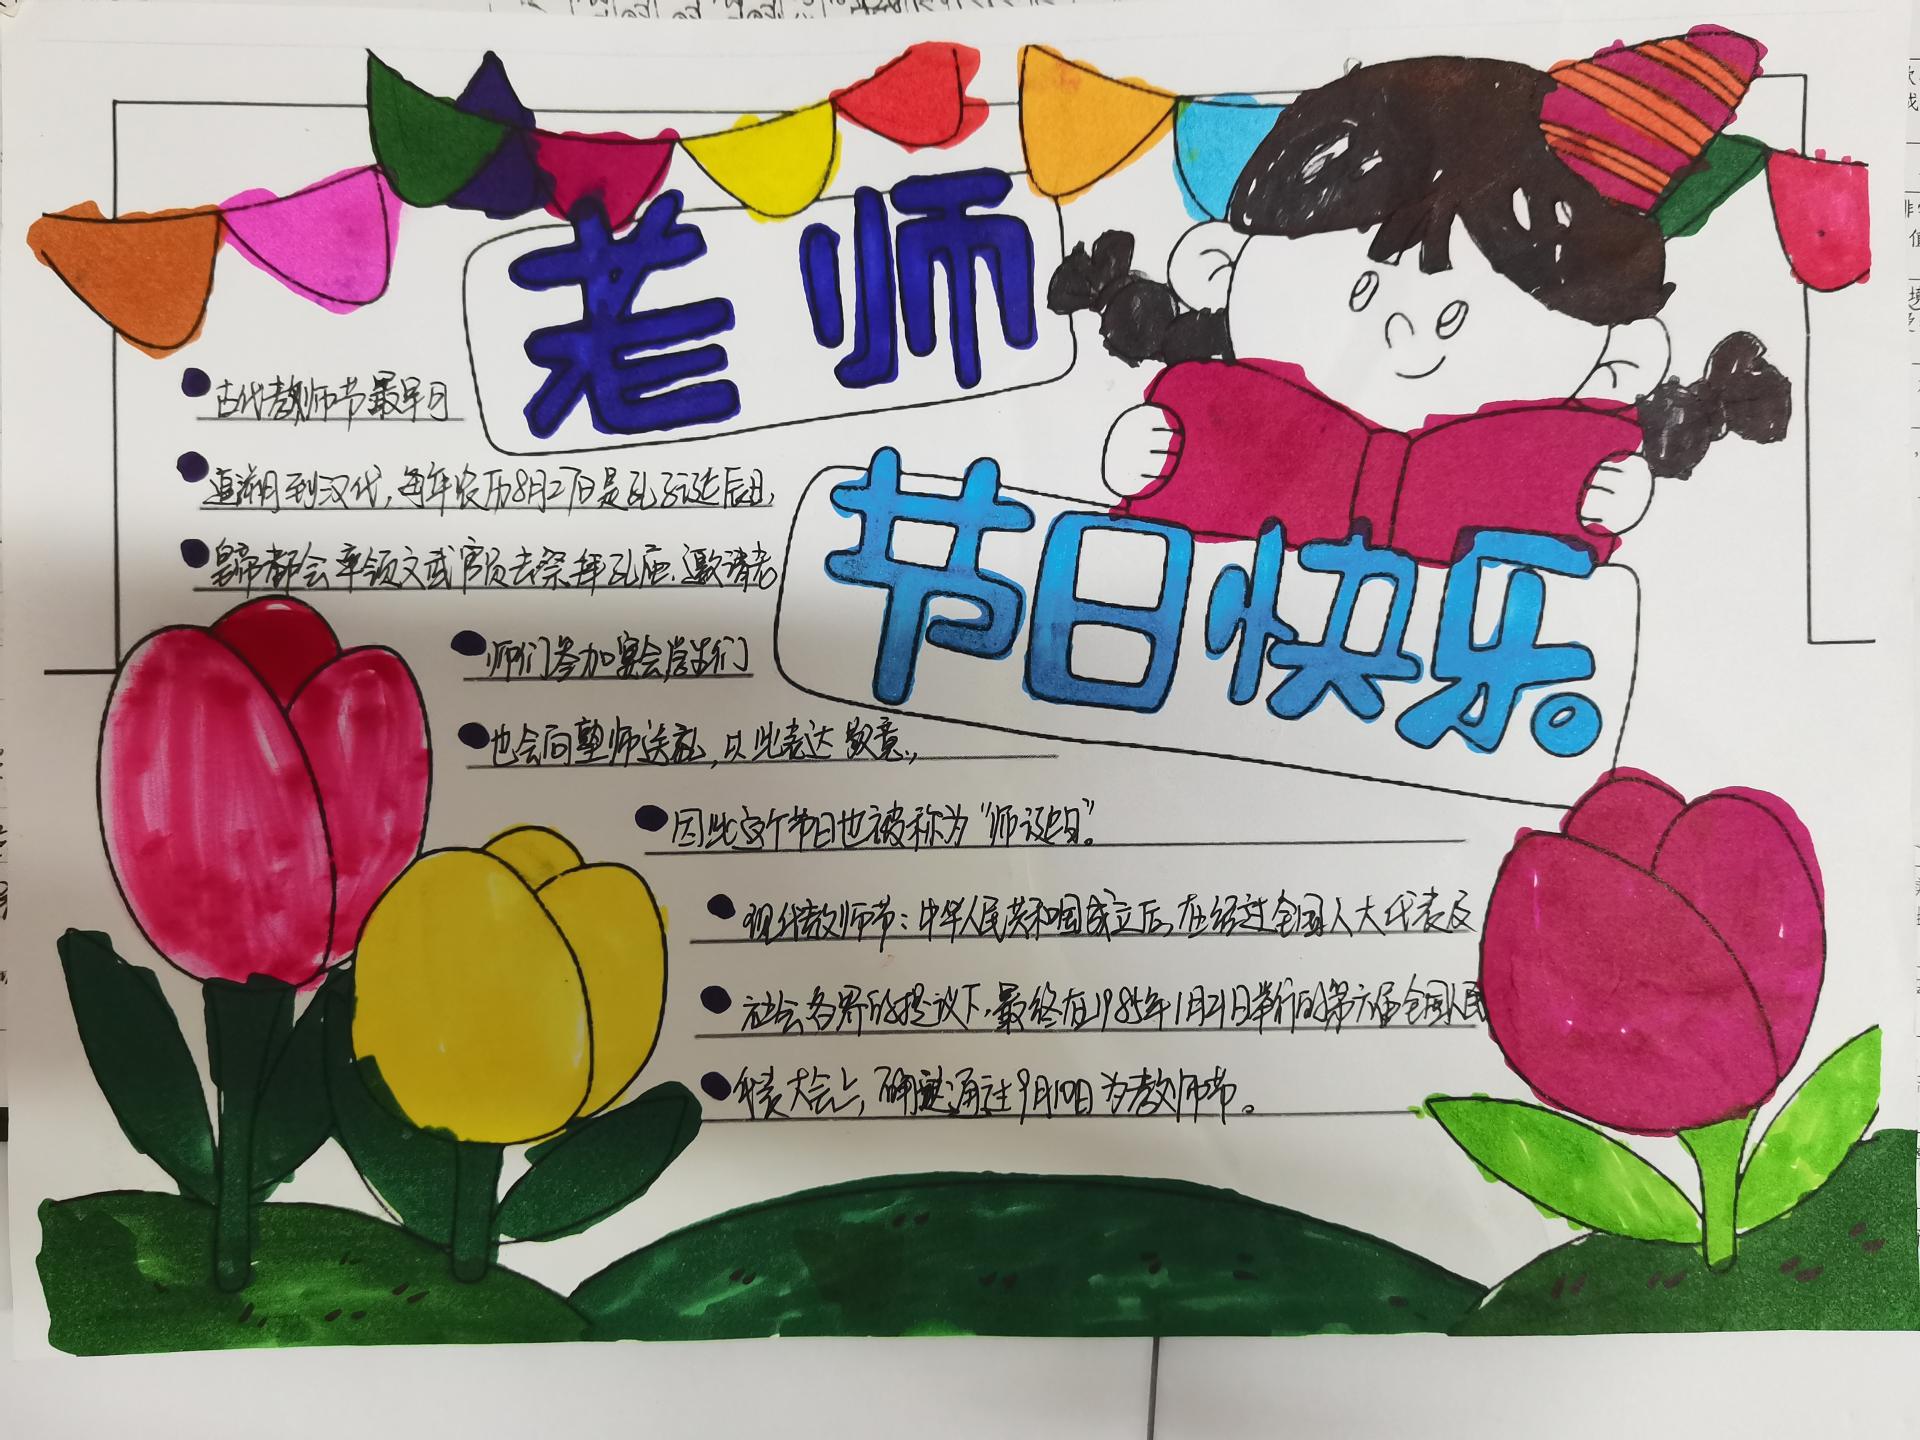 老师
节日快乐。
古代教师节最早曰
追溯到汉代，每年农历8月27日是孔子诞辰日，
皇帝都会率领文武官员去祭拜孔庙，邀请老
师们参加宴会学生们
也会向塾师送礼，以此表达敬意，
因此这个节日也被称为“师诞日”。
现代教师节：中华人民共和国成立后，在经过全国人大代表及
社会各界的提议下，最终在1985年1月21日举行的第六届全国人民
代表大会上，确定通过9月10日为教师节。